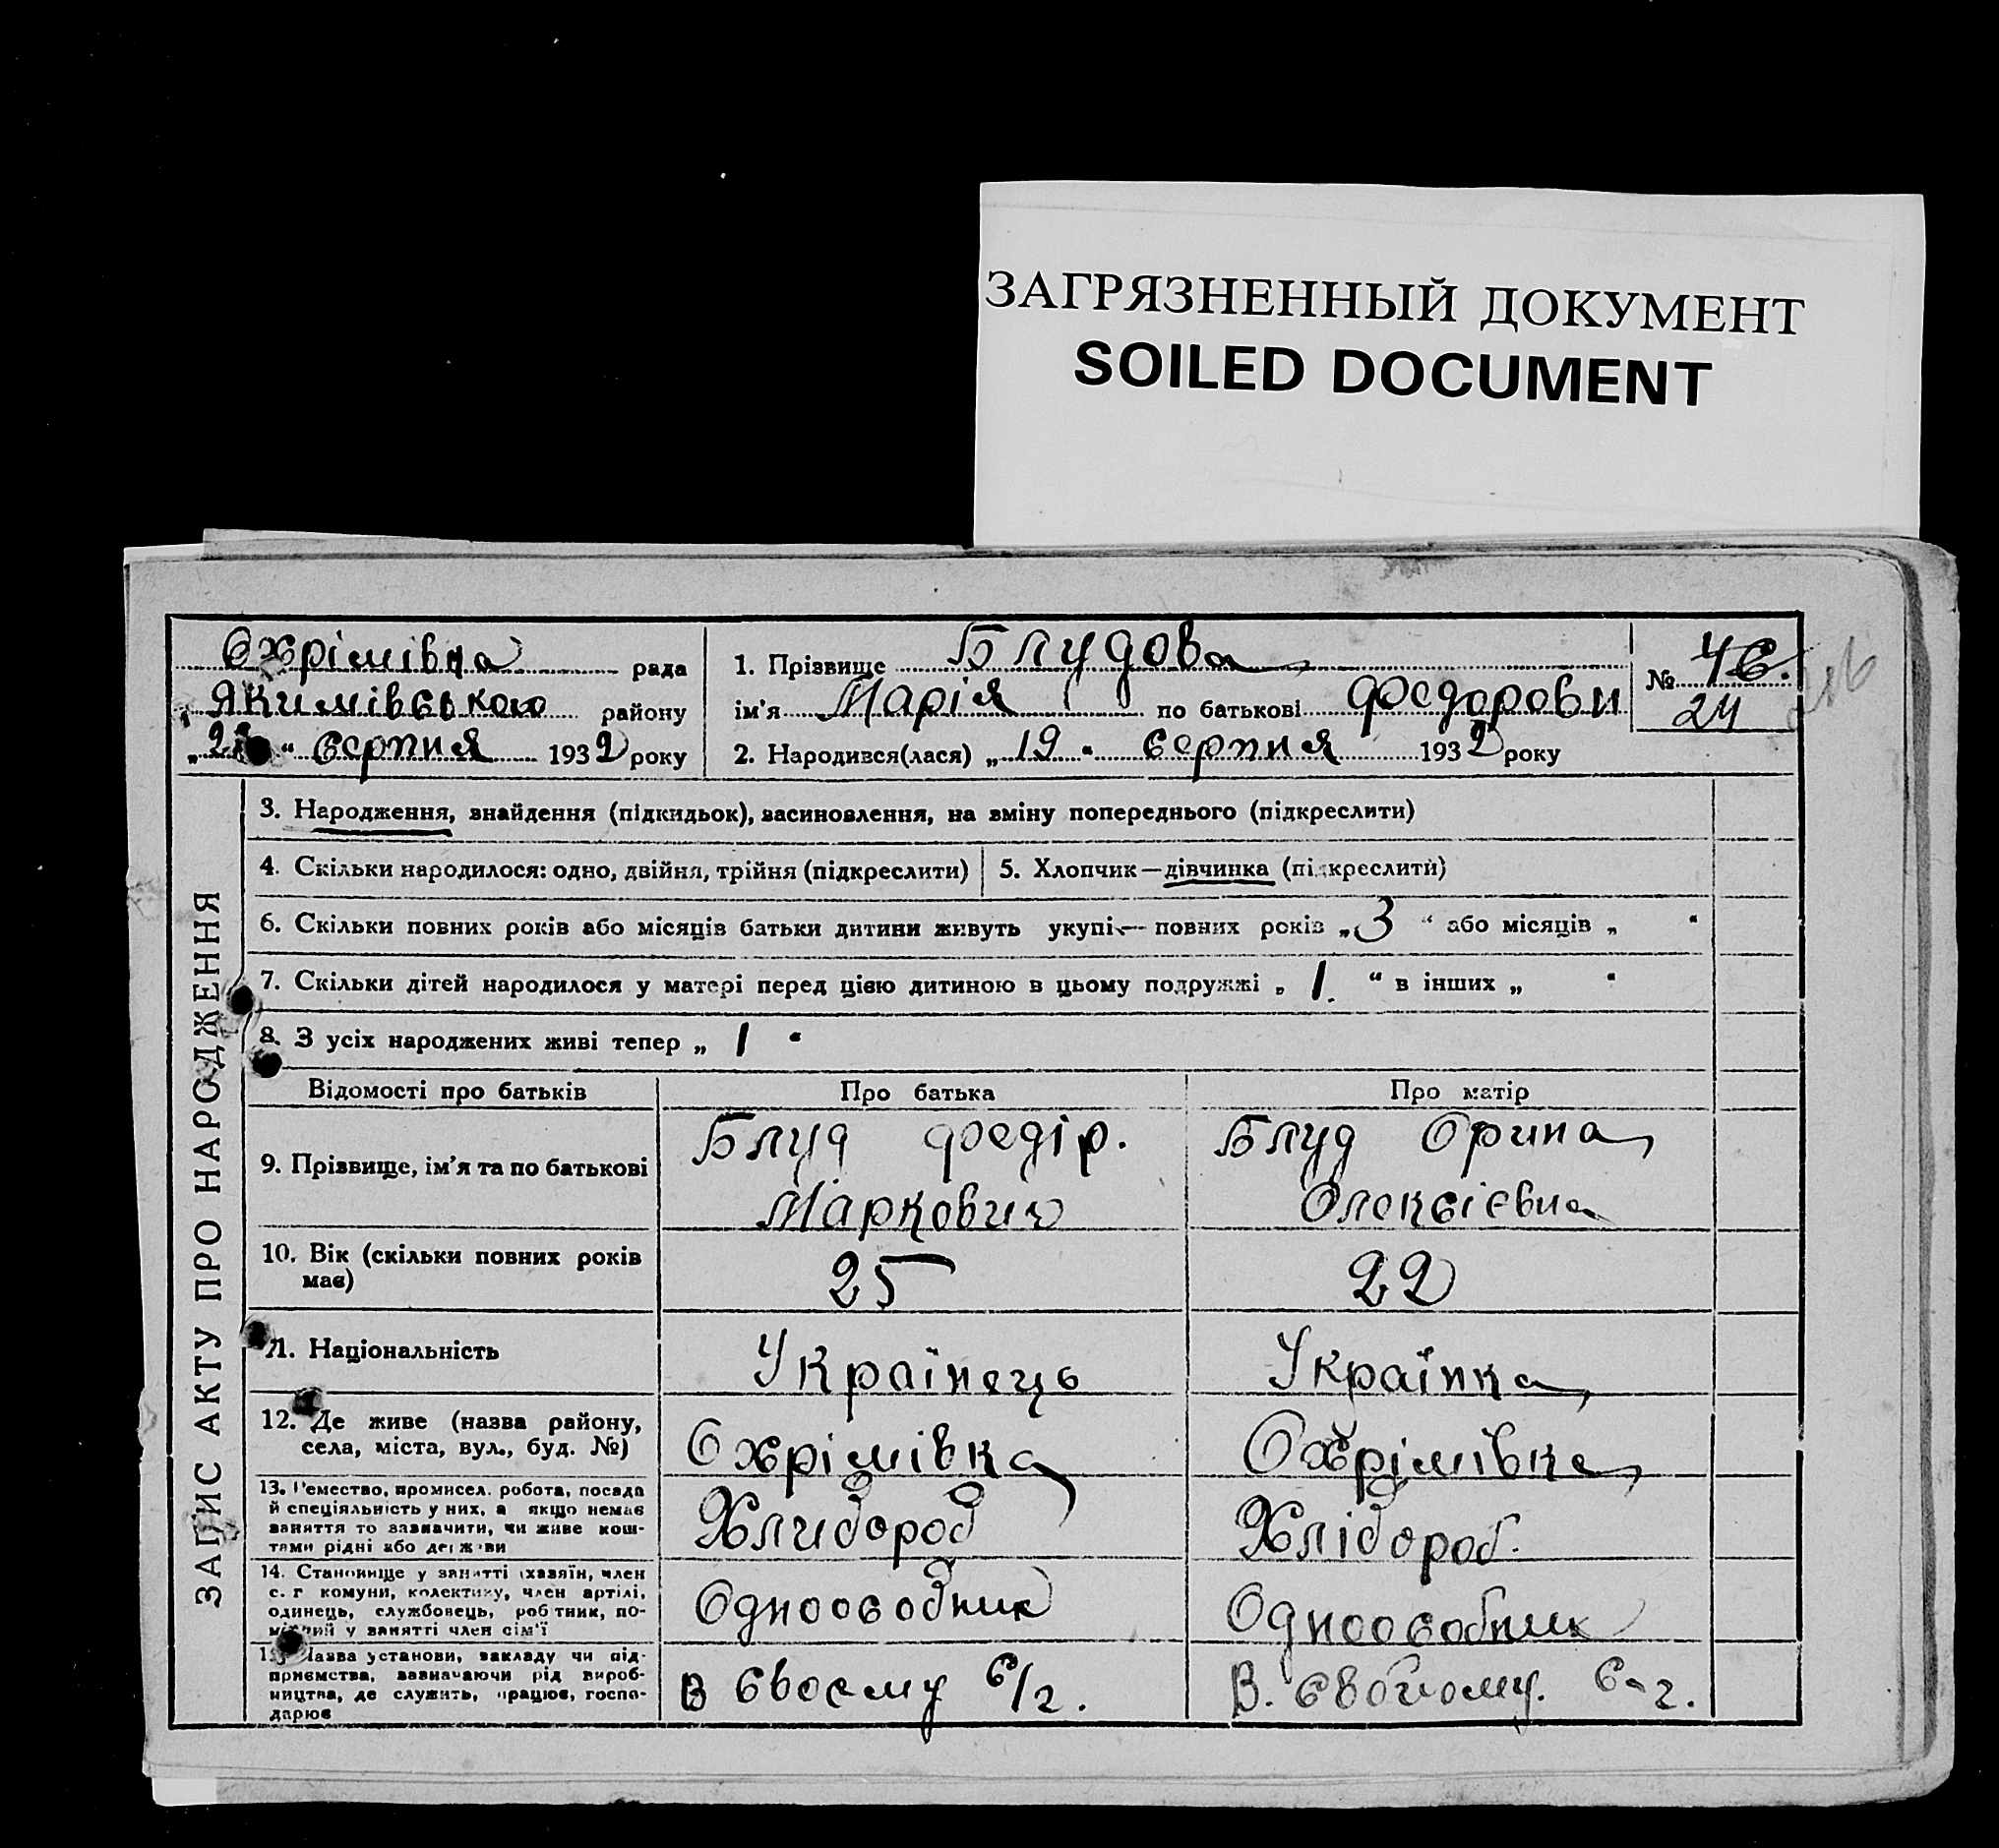 ЗАГРЯЗНЕННЫЙ ДОКУМЕНТ
SOILED DOCUMENT
Охрімівка рада
Якимівського району
" серпня 1932 року
1. Прізвище Блудова
ім'я Марія по батькові Федоровн
2. Народився(лася) „ 19 " серпня 1932 року
№ 46.
24
ЗАПИС АКТУ ПРО НАРОДЖЕННЯ
3. Народження, знайдення (підкидьок), засиновлення, на зміну попереднього (підкреслити)
4. Скільки народилося: одно, двійня, трійня (підкреслити)
5. Хлопчик — дівчинка (підкреслити)
6. Скільки повних років або місяців батьки дитини живуть укупі — повних років „ 3 " або місяців „ "
7. Скільки дітей народилося у матері перед цією дитиною в цьому подружжі „ 1. " в інших „ "
8. З усіх народжених живі тепер „ 1 "
Відомості про батьків
Про батька
Про матір
9. Прізвище, ім'я та по батькові
Блуд Федір.
Маркович
Блуд Орина
Олексієвна
10. Вік (скільки повних років
має)
25
22
11. Національність
Українець
Українка
12. Де живе (назва району,
села, міста, вул., буд. №)
Охрімівка
Охрімівка
13. Ремество, промисел, робота, посада
й спеціяльність у них, а якщо немає
заняття то зазначити, чи живе кош-
тами рідні або держави
Хлибороб
Хлібороб.
14. Становище у занятті (хазяїн, член
с. г. комуни, колективу, член артілі,
одинець, службовець, робітник, по-
мічний у занятті член сім'ї
Одноособник
Одноособник
15. Назва установи, закладу чи під-
приємства, зазначаючи рід вироб-
ництва, де служить, працює, госпо-
дарює
В своєму с/г.
В. своїому. с-г.